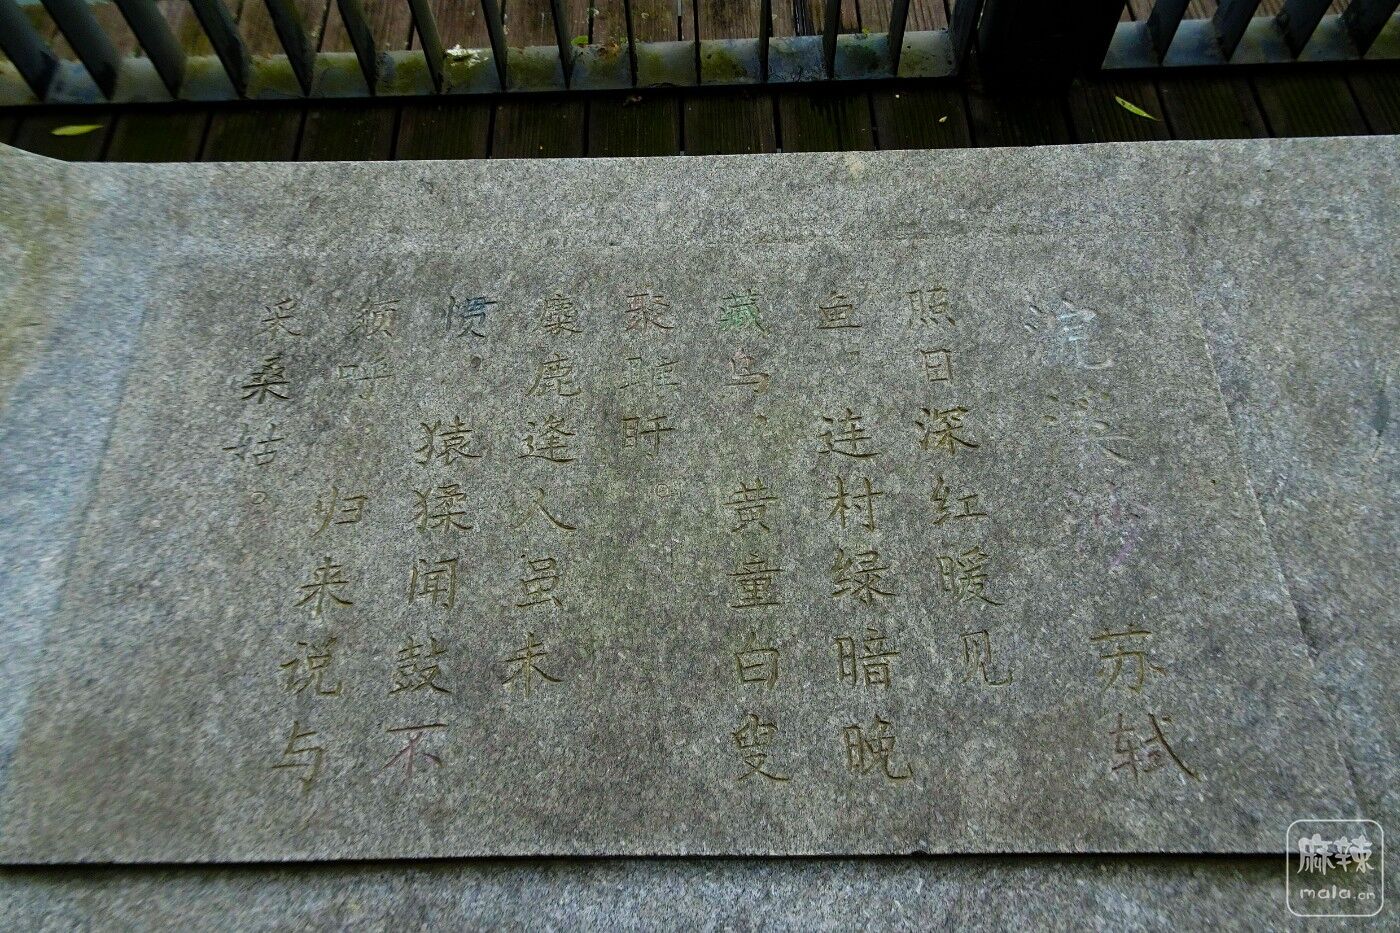 浣溪沙 苏轼
照日深红暖见
鱼，连村绿暗晚
藏乌，黄童白叟
聚睢盱。
麋鹿逢人虽未
惯，猿猱闻鼓不
须呼 归来说与
采桑姑。
麻辣
mala.cn